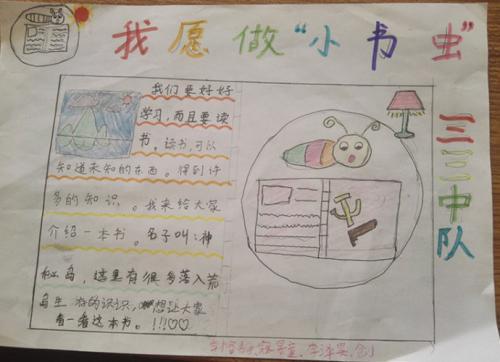 我愿做“小书虫”
三（二）中队
我们要好好
学习，而且要读
书。读书，可以
知道未知的东西。得到许
多的知识。我来给大家
介绍一本书。名子叫：神
秘岛，这里有很多落入荒
岛生存的识识，想让大家
看一看这本书。!!!♡♡